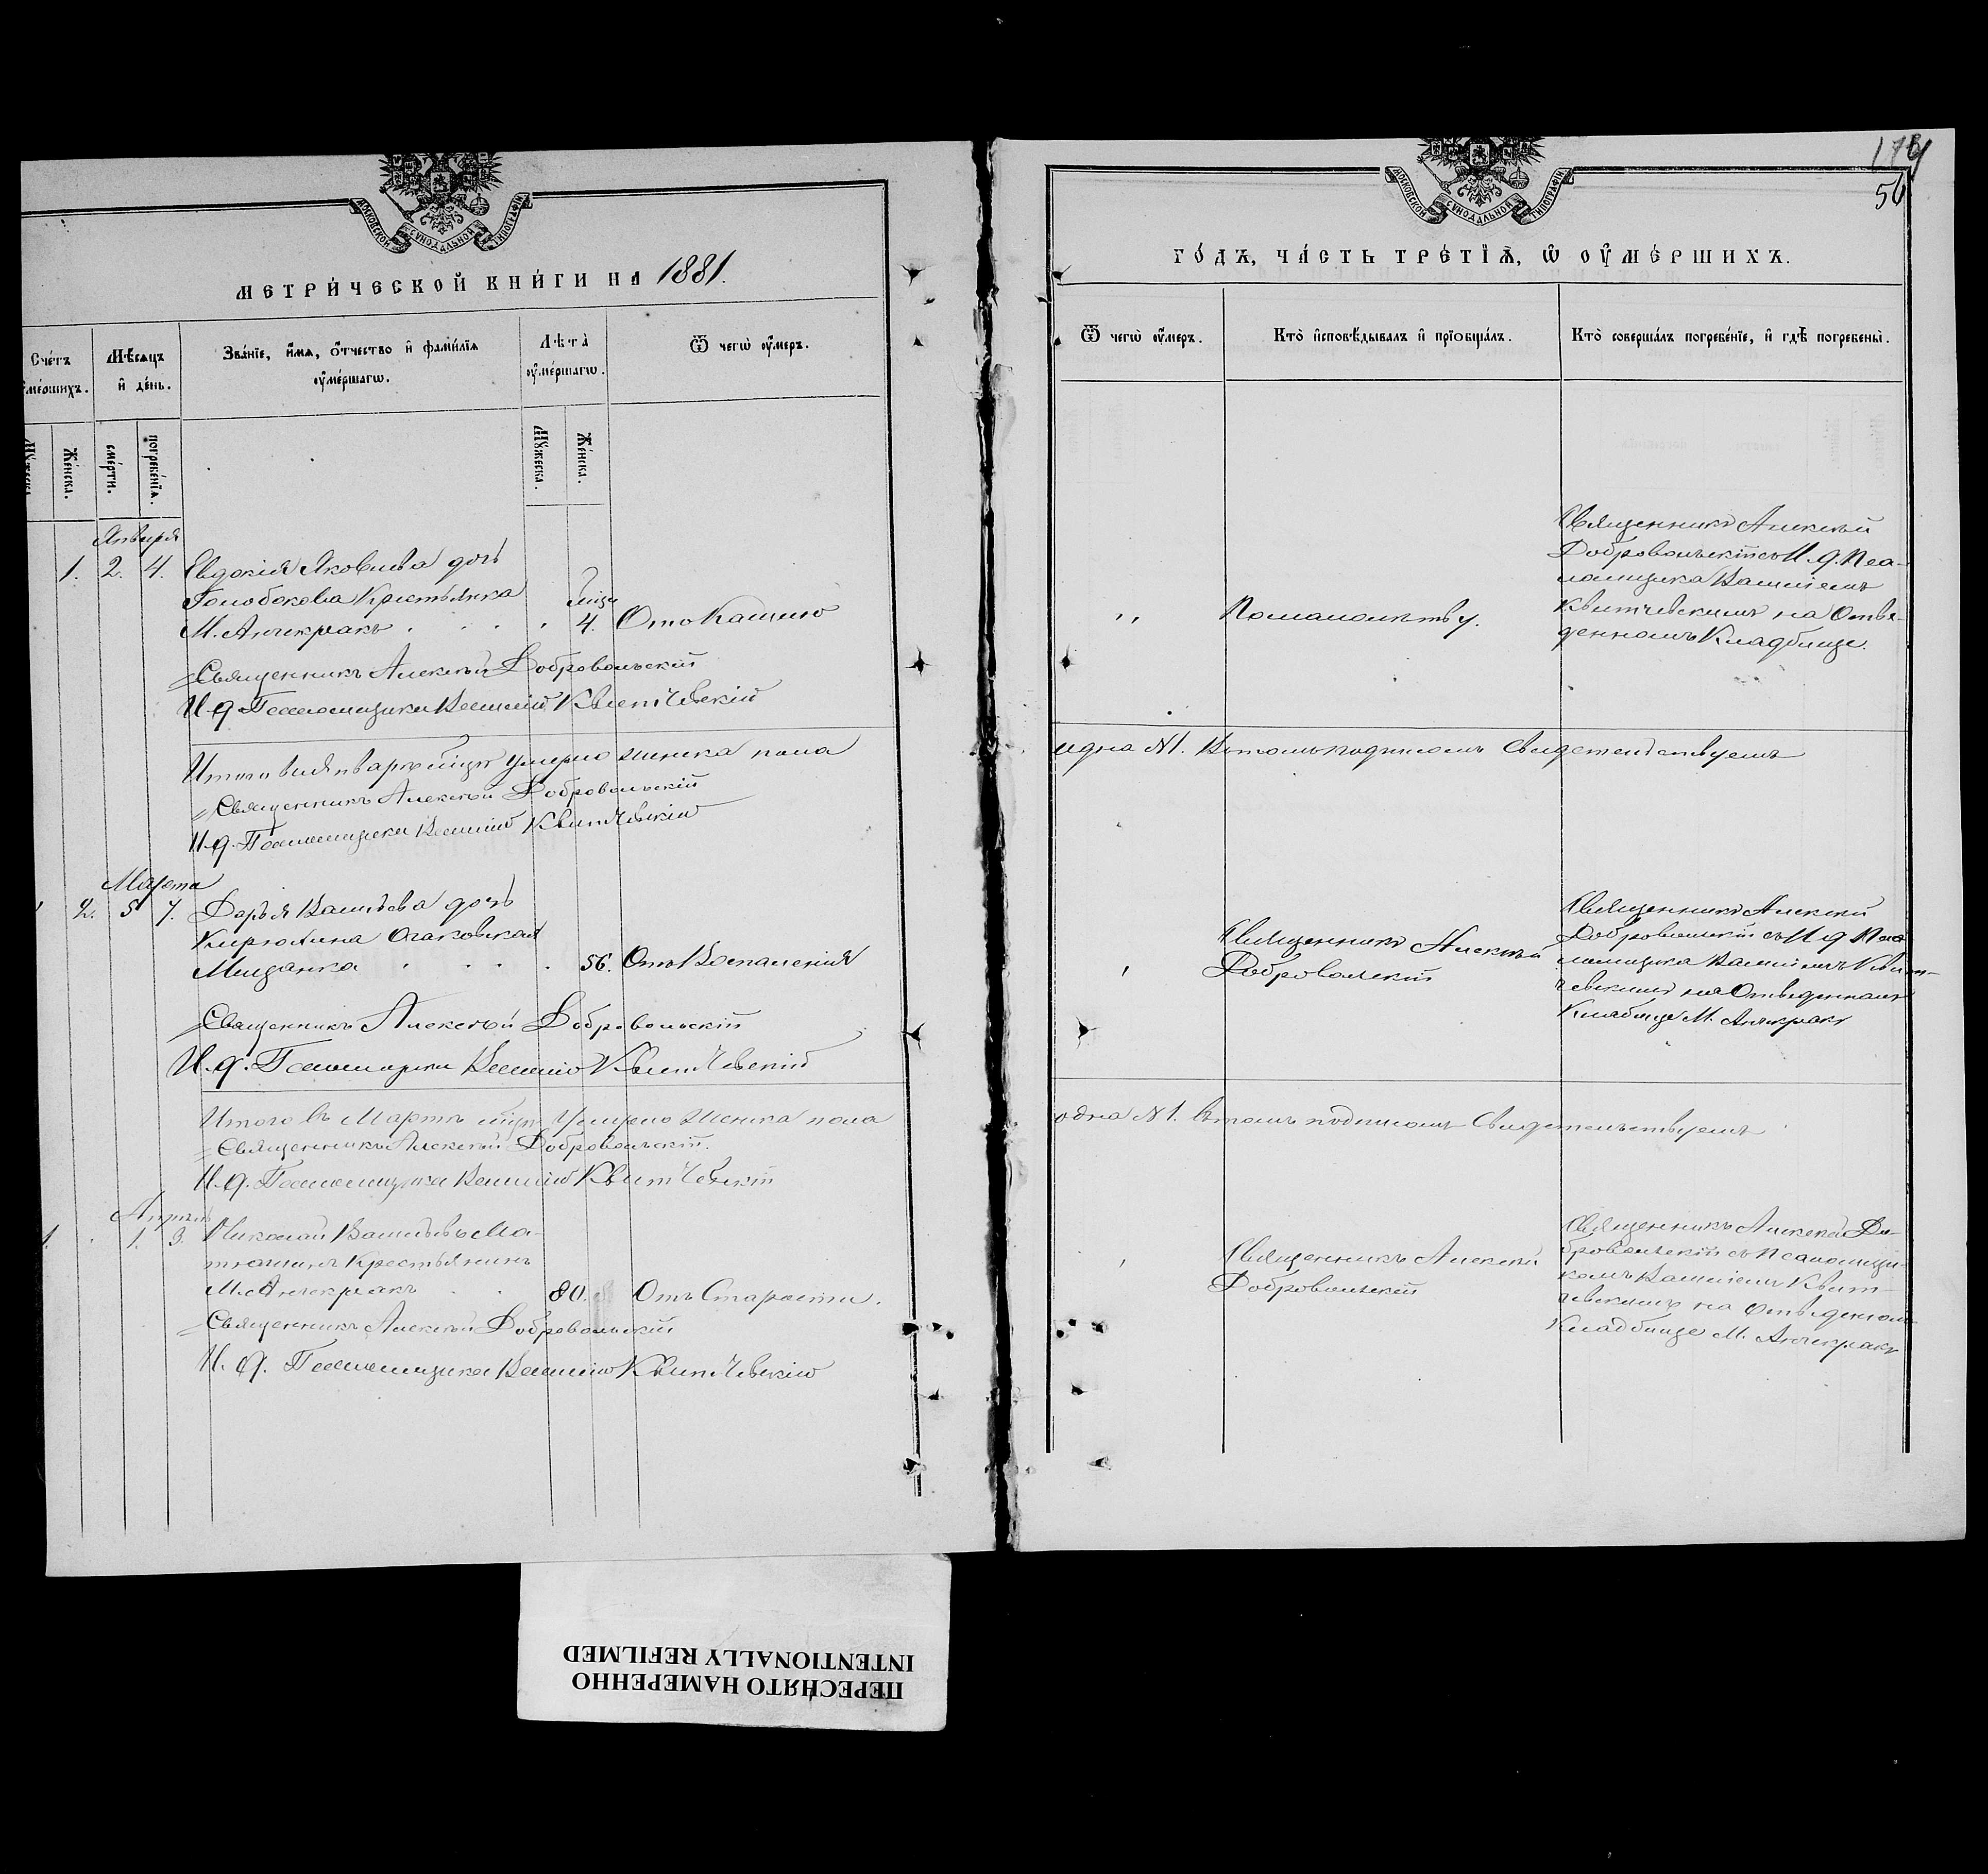 МОСКОВСКОЙ СУНОДАЛЬНОЙ ТИПОГРАФІИ
МЕТРИ́ЧЕСКОЙ КНИ́ГИ НА 1881.
Сче́тъ
ᲂу҆ме́ршихъ.
Мѣ́сяцъ
и҆ де́нь.
Зва́нїе, и҆́мѧ, ѻ҆́тчество и҆ фами́лїѧ
ᲂу҆ме́ршагѡ.
Лѣ́та̀
ᲂу҆ме́ршагѡ.
Ѿ чегѡ̀ ᲂу҆́меръ.
Му́жеска.
Же́нска.
сме́рти.
погребе́нїѧ.
Му́жеска.
Же́нска.
Января
1. 2. 4. Евдокія Яковлева дочь
Голобокова Крестьянка мѣсц.
М. Анчекракъ . . . . 4. Отъ Кашлю
Священникъ Алексѣй Добровольскій
И. д. Псаломщика Василій Квитчевскій
Итого въ Январѣ мѣсцѣ умерло женска пола
Священникъ Алексѣй Добровольскій
И. д. Псаломщика Василій Квитчевскій
Марта
2. 5 7. Дарья Васильева дочь
Кирюхина Очаковская
Мещанка . . . . 56. Отъ Воспаленія
Священникъ Алексѣй Добровольскій
И. д. Псаломщика Василій Квитчевскій
Итого въ Мартѣ мѣсцѣ Умерло женска пола
Священникъ Алексѣй Добровольскій.
И. д. Псаломщика Василій Квитчевскій
Апрѣль
1. 1. 3. Николай Васильевъ
Крестьянинъ
М. Анчекракъ . . 80. Отъ Старости.
Священникъ Алексѣй Добровольскій
И. д. Псаломщика Василій Квитчевскій
56
МОСКОВСКОЙ СУНОДАЛЬНОЙ ТИПОГРАФІИ
ГО́ДЪ, ЧА́СТЬ ТРЕ́ТЇѦ, Ѡ҆ ОУ҆МЕ́РШИХЪ.
Ѿ чегѡ̀ ᲂу҆́меръ.
Кто̀ и҆сповѣ́дывалъ и҆ прїобща́лъ.
Кто̀ соверша́лъ погребе́нїе, и҆ гдѣ̀ погребены̀.
,, Помалолѣтву.
Священникъ Алексѣй
Добровольскій съ И. д. Пса-
ломщика Василіемъ
Квитчевскимъ на Отве-
денномъ Кладбище.
одна №1. Въ томъ подписомъ Свидетельствуемъ
Священникъ Алексѣй
Добровольскій
Священникъ Алексѣй
Добровольскій съ И д Пса
ломщика Василіемъ Квит-
чевскимъ на Отведенномъ
Кладбище М. Анчекракъ
одна №1. Въ томъ подписомъ Свидетельствуемъ
Священникъ Алексѣй
Добровольскій
Священникъ Алексѣй До-
бровольскій съ Псаломщи-
комъ Василіемъ Квит-
чевскимъ на отведеном
Кладбище М. Анчекракъ
ПЕРЕСНЯТО НАМЕРЕННО
INTENTIONALLY REFILMED